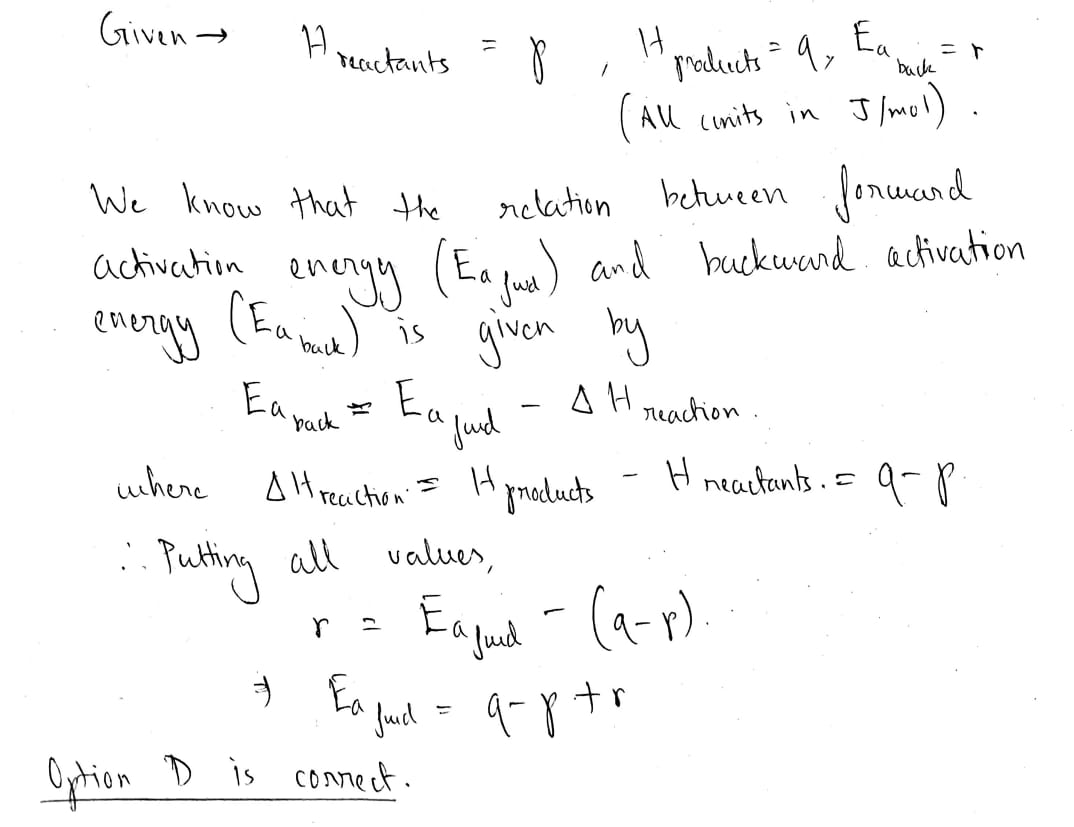 Given → H reactants = p , H products = q, Ea back = r
(All units in J/mol) .
We know that the relation between forward
activation energy (Ea fwd) and backward activation
energy (Ea back) is given by
Ea back = Ea fwd - Δ H reaction .
where ΔH reaction = H products - H reactants. = q-p.
∴ Putting all values,
r = Ea fwd - (q-p).
⇒ Ea fwd = q-p+r
Option D is correct.